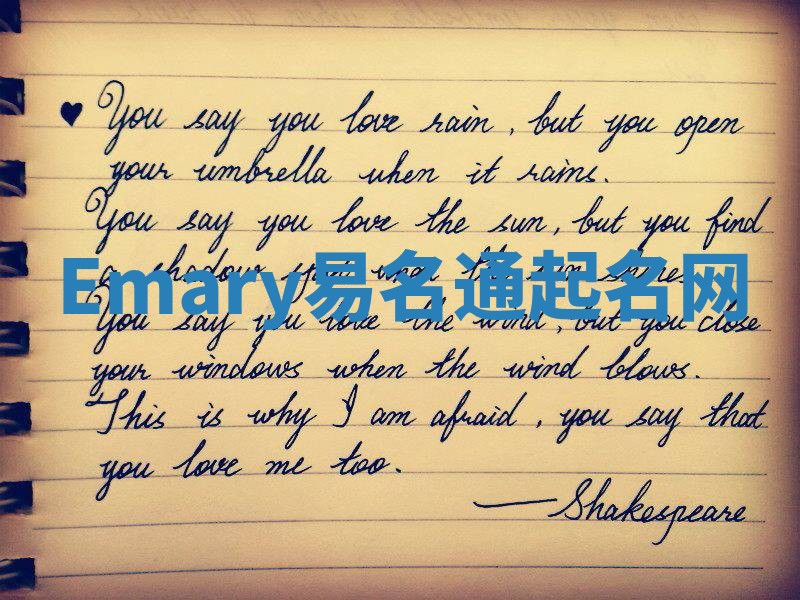 ♥ You say you love rain, but you open
your umbrella when it rains.
You say you love the sun, but you find
a shadow spot when the sun shines.
Emary易名通起名网
You say you love the wind, but you close
your windows when the wind blows.
This is why I am afraid, you say that
you love me too.
—Shakespeare